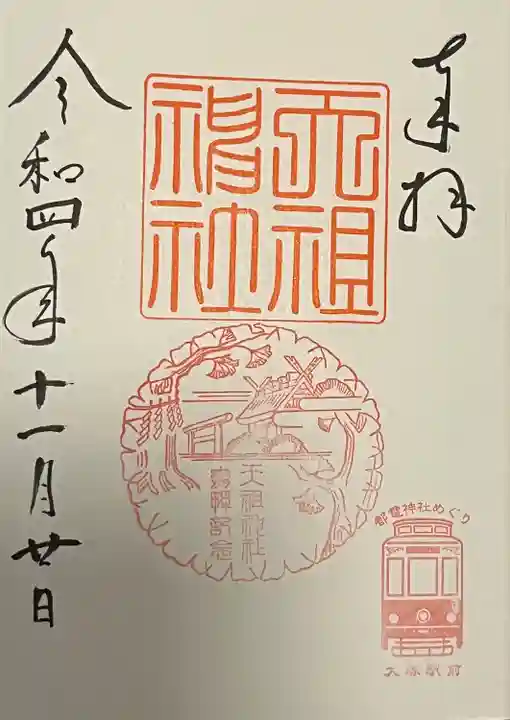 奉拝
天祖
神社
天祖神社
参拝記念
都電神社めぐり
大塚駅前
令和四年十一月廿日